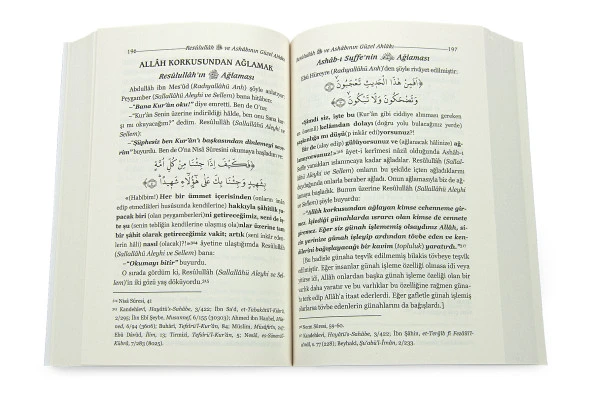 196
Resûlullâh ﷺ ve Ashâbının Güzel Ahlâkı
ALLÂH KORKUSUNDAN AĞLAMAK
Resûlullâh'ın ﷺ Ağlaması
Abdullah ibn Mes'ûd (Radıyallâhü Anh) şöyle anlatıyor:
Peygamber (Sallallâhü Aleyhi ve Sellem) bana hitâben:
–"Bana Kur'ân oku!" diye emretti. Ben de O'na:
–"Kur'ân Senin üzerine indirildiği hâlde, ben onu Sana
mı okuyacağım?" dedim. Resûlullâh (Sallallâhü Aleyhi ve
Sellem):
–"Şüphesiz ben Kur'ân'ı başkasından dinlemeyi seve-
rim" buyurdu. Ben de O'na Nisâ Sûresini okumaya başladım ve:
فَكَيْفَ إِذَا جِئْنَا مِنْ كُلِّ أُمَّةٍ
بِشَهِيدٍ وَجِئْنَا بِكَ عَلَى هٰٓؤُلَٓاءِ شَهِيدًا
«(Habîbim!) Her bir ümmet içerisinden (onların inkâr
edip etmedikleri hususunda kendilerine) hakkıyla şâhitlik ya-
pacak biri (olan peygamberleri)ni getireceğimiz, seni de iş-
te şu (kendilerine tebliğin tekliğine ulaşmış o)nlar üzerine tam
bir şâhit olarak getireceğimiz vakit; artık (seni inkâr edenlerin
hâli) nasıl (olacak)?!» âyetine ulaştığımda Resûlullâh (Sallallâhü
Aleyhi ve Sellem) bana:
–"Okumayı bitir" buyurdu.
O sırada gördüm ki, Resûlullâh (Sallallâhü Aleyhi ve Sel-
lem)in iki gözü yaş döküyordu.
Nisâ Sûresi, 41
Kandehlevî, Hayâtü's-Sahâbe, 3/422; İbn Sa'd, et-Tabakâtü'l-Kübrâ,
2/295; İbn Ebî Şeybe, Musannef, 6/155 (30303); Ahmed ibn Hanbel, Müsned,
6/94 (3606); Buhârî, Tefsîru'l-Kur'ân, 84; Müslim, Müsâfirîn,
Ebû Dâvûd, İlim, 13; Tirmizî, Tefsîru'l-Kur'ân, 5; Nesâî, es-Sünenü'l-
Kübrâ, 7/283 (8025).
Resûlullâh ﷺ ve Ashâbının Güzel Ahlâkı
197
Ashâb-ı Suffe'nin Ağlaması
Ebû Hüreyre (Radıyallâhü Anh)'den şöyle rivâyet edilmiştir:
أَفَمِنْ هٰذَا الْحَدِيثِ تَعْجَبُونَ
وَتَضْحَكُونَ وَلَا تَبْكُونَ
«Şimdi siz, işte bu (Kur'ân gibi ciddiye alınması gereken
kelâmdan dolayı (doğru yolu bulacağınız yerde)
mı düşü(p inkâr ed)iyorsunuz?!
Bir de (alay edip) gülüyorsunuz ve (ağlanacak hâlinize) ağ-
lamıyorsunuz!» âyet-i kerîmesi nâzil olduğunda Ashâb-ı
Suffe yanakları ıslanıncaya kadar ağladılar. Resûlullâh (Sallal-
lâhü Aleyhi ve Sellem) onların bu şekilde için için ağladıklarını
onlarla beraber ağladı. Onun ağlamasıyla biz de ağ-
lamaya başladık. Bunun üzerine Resûlullâh (Sallallâhü Aleyhi
ve Sellem) şöyle buyurdu:
–"Allâh korkusundan ağlayan kimse cehenneme gir-
mez. İşlediği günahlarda ısrarcı olan kimse de cennete
giremez. Eğer siz günah işlemeyi olsaydınız Allâh, si-
zin yerinize günah işleyip ardından tövbe eden ve ken-
dilerini bağışlayacağı bir kavim (topluluk) yaratırdı."
[Bu hadîste günaha teşvik edilmemiş bilakis tövbeye teşvik
edilmiştir. Eğer insanlar günah işleme özelliği olmasa idi veya
onlardan başka günah işleme özelliğine sahip varlıklar olmasa
yaratır ve bu varlıklar bu özelliğine rağmen günahı
terk edip Allâh'a itaat ederlerdi. Eğer gafletle günah işlemiş
olsalardı tövbe ederlerdi.]
Necm Sûresi, 59-60.
Kandehlevî, Hayâtü's-Sahâbe, 3/422; İbn Şâhin, et-Terğîb fî Fezâili'l-
s. 77 (228); Beyhakî, Şu'abü'l-Îmân, 2/233.